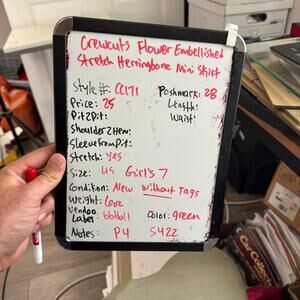 Crewcuts Flower Embellished
Stretch Herringbone Mini Skirt
Style#: CC171 Poshmark: 28
Price: 25 Length:
Pit2Pit: Waist:
Shoulder2Hem:
SleeveFromPit:
Stretch: Yes
Size: US Girl's 7
Condition: New Without Tags
Weight: 6oz
Vendoo
Label: Color: green
Notes: P4 5422